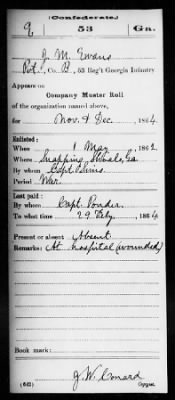 (Confederate.)
E 53 Ga.
J. M. Evans
Pvt., Co. B, 53 Reg't Georgia Infantry.
Appears on
Company Muster Roll
of the organization named above,
for Nov. & Dec., 1864.
Enlisted:
When 1 May, 1862
Where Snapping Shoals, Ga
By whom Capt. Sims
Period War
Last paid:
By whom Capt. Ponder
To what time 29 Feby., 1864
Present or absent Absent
Remarks: At hospital (wounded)
Book mark:
J. W. Conard
(642) Copyist.